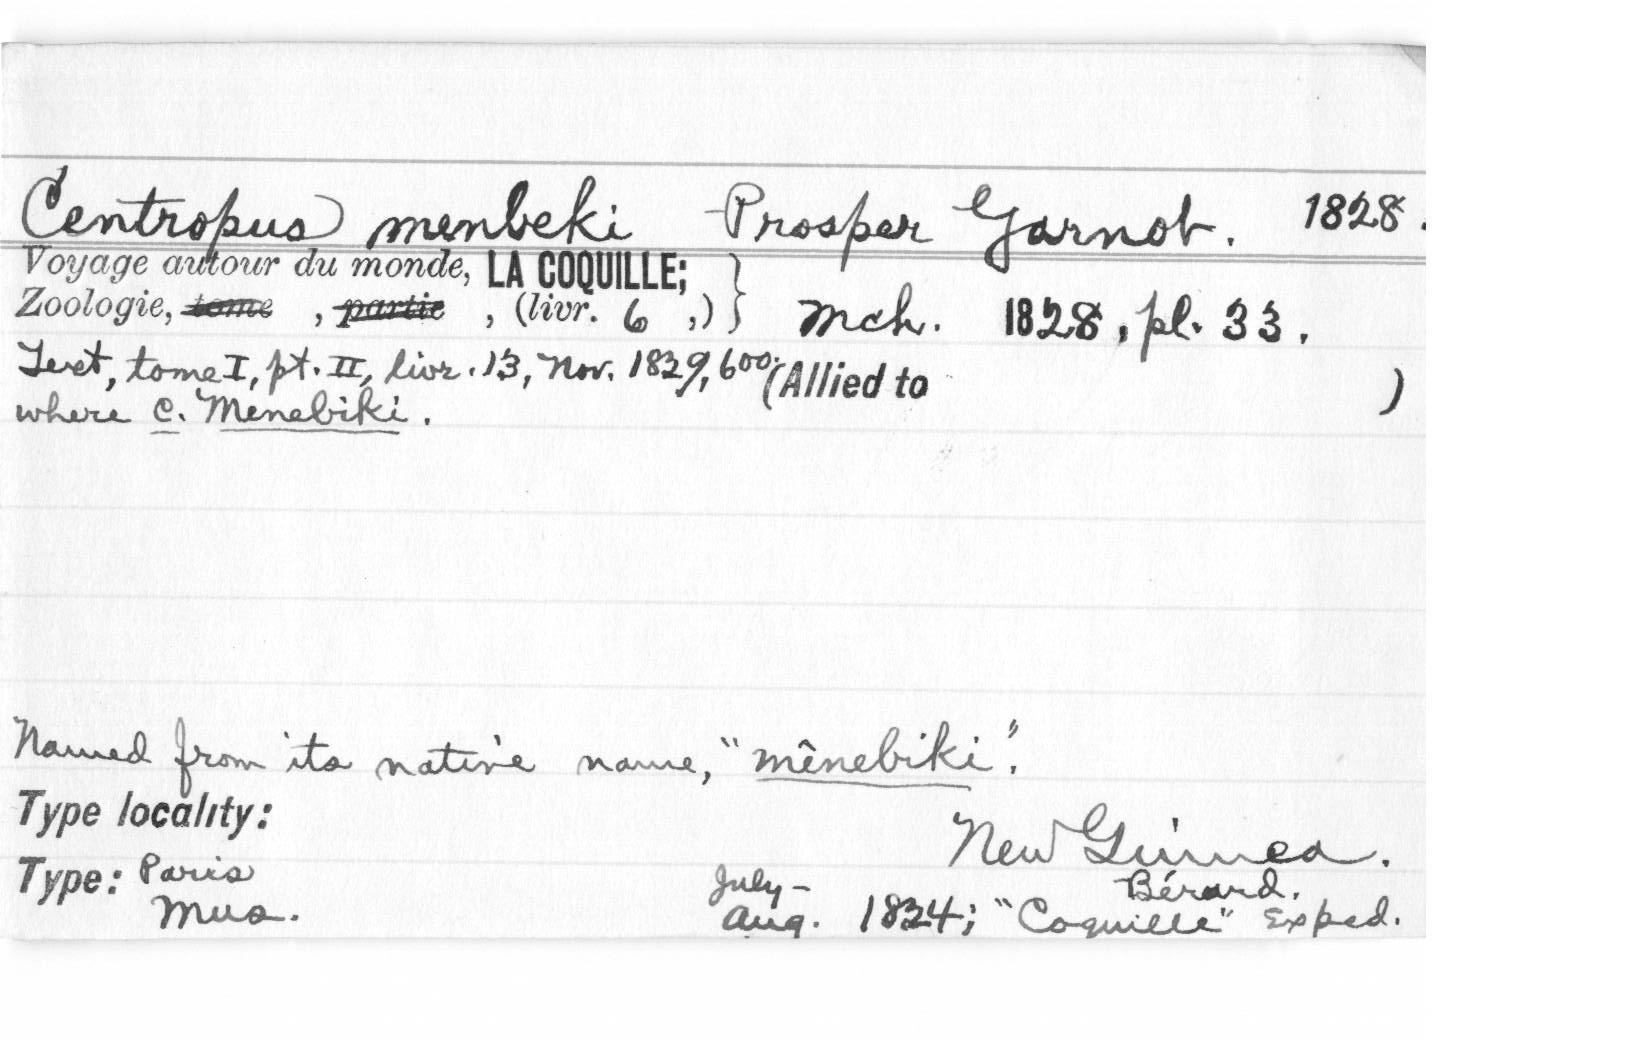 Centropus menbeki Prosper Garnot. 1828.
Voyage autour du monde, LA COQUILLE;
Zoologie, tome , partie , (livr. 6 ,) } Mch. 1828, pl. 33.
Text, tome I, pt. II, livr. 13, Nov. 1829, 600. (Allied to )
where C. Menebiki.
Named from its native name, "mênebiki".
Type locality:
New Guinea.
Type: Paris Mus.
Bérard.
July-Aug. 1824; "Coquille" Exped.